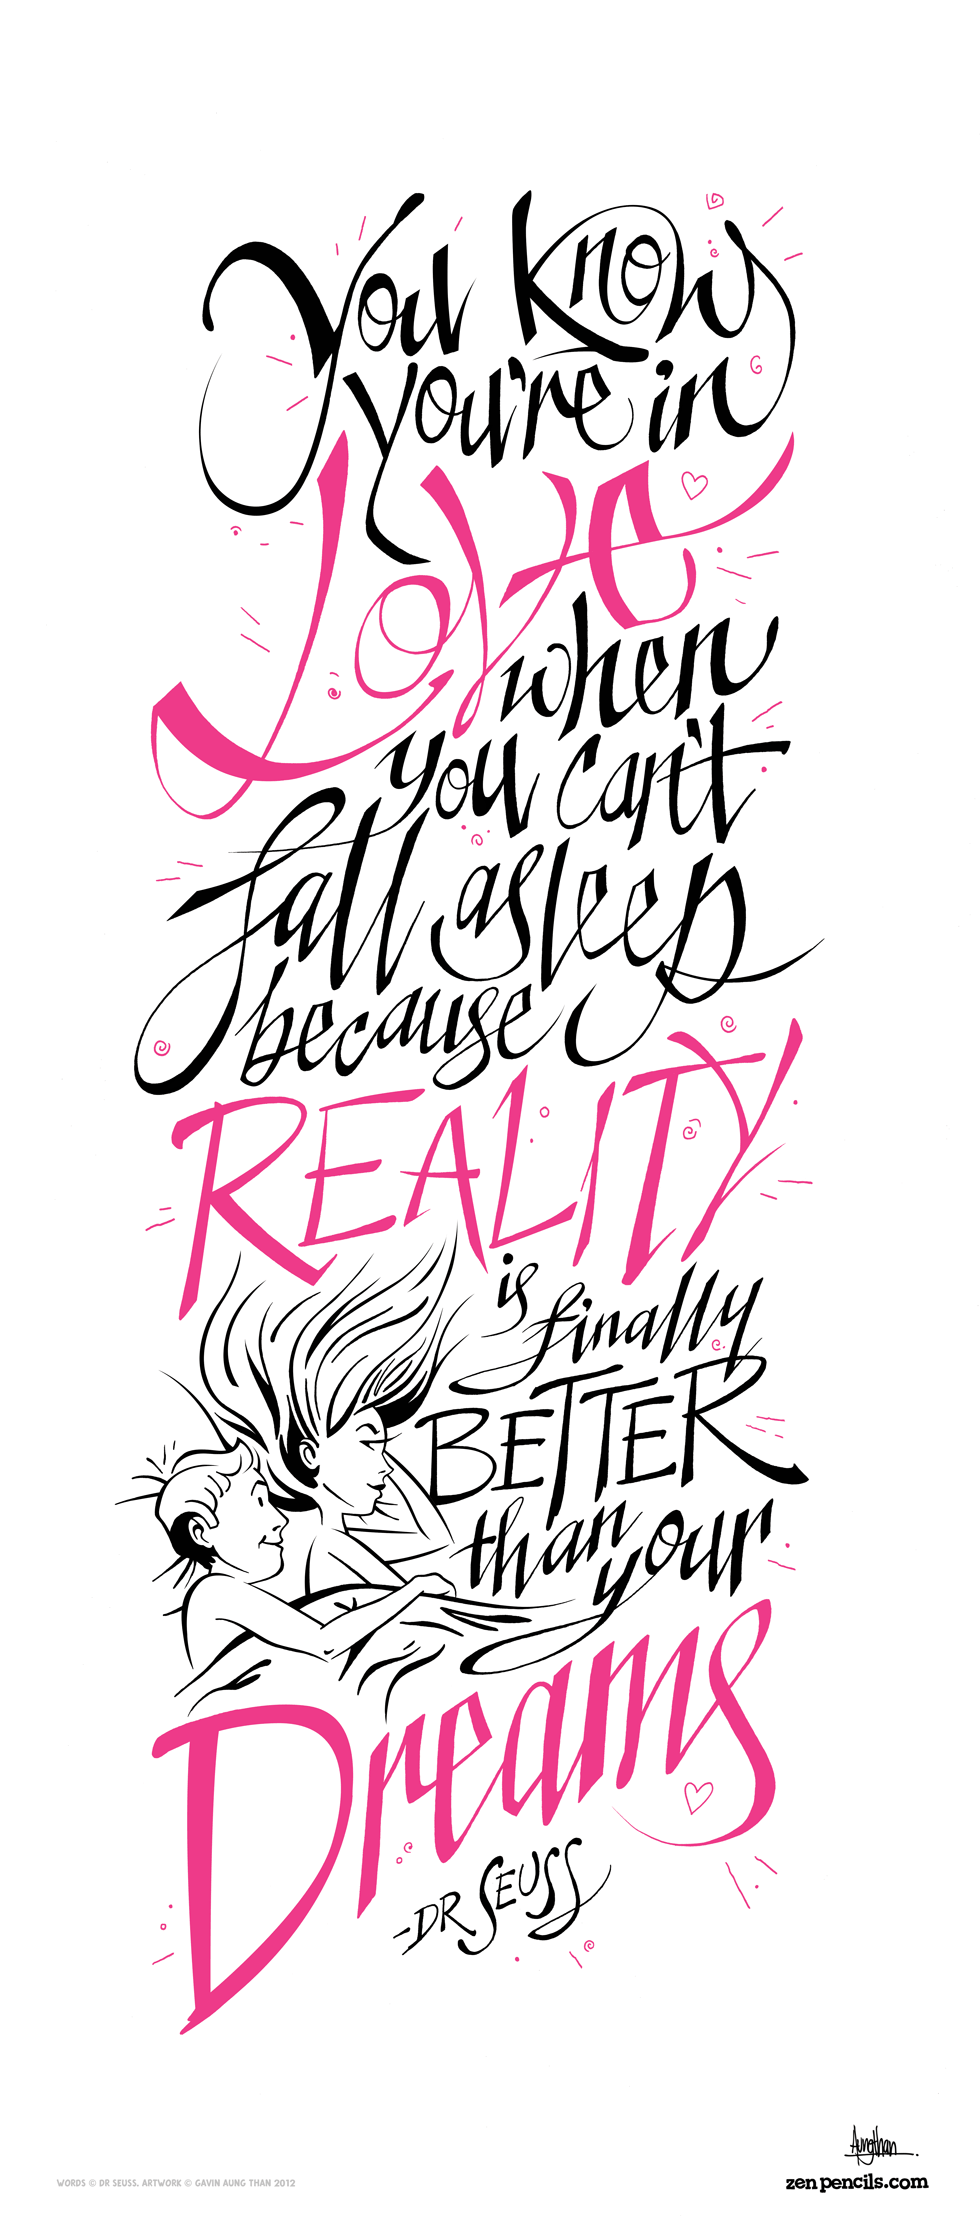 You know
you're in
Love
when
you can't
fall asleep
because
REALITY
is
finally
BETTER
than your
Dreams
-DR SEUSS
Aungthan
WORDS © DR SEUSS. ARTWORK © GAVIN AUNG THAN 2012
zenpencils.com